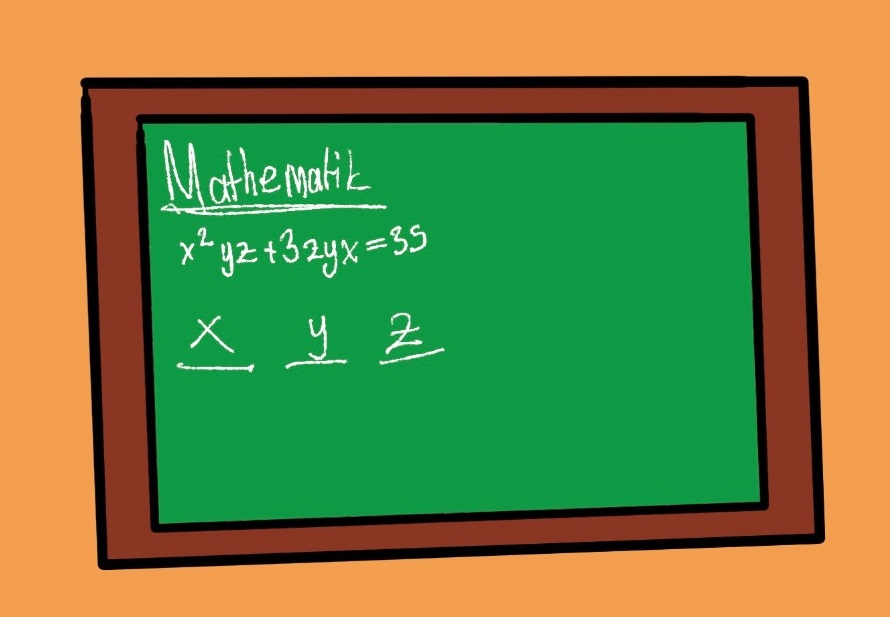 Mathematik
x² yz+3zyx=35
x y z